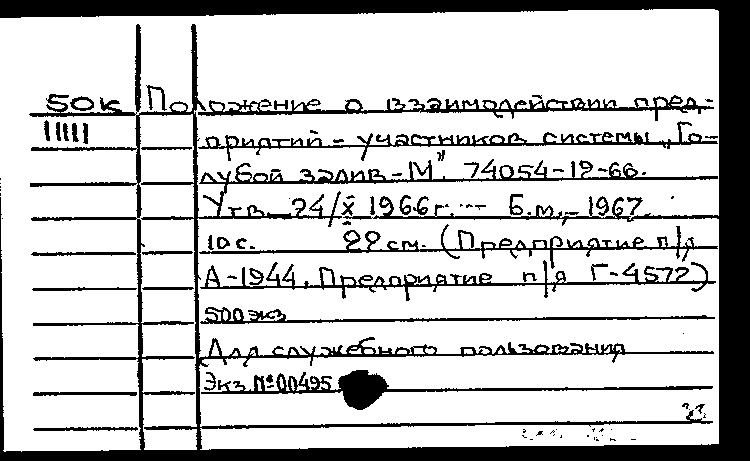 50к Положение о взаимодействии пред-
приятий - участников системы „Го-
лубой залив-М". 74054-12-66.
Утв. 24/X 1966 г. — Б.м., 1967.
10 с. 22 см. (Предприятие п/я
А-1944. Предприятие п/я Г-4572)
500 экз
Для служебного пользования
Экз. №00495